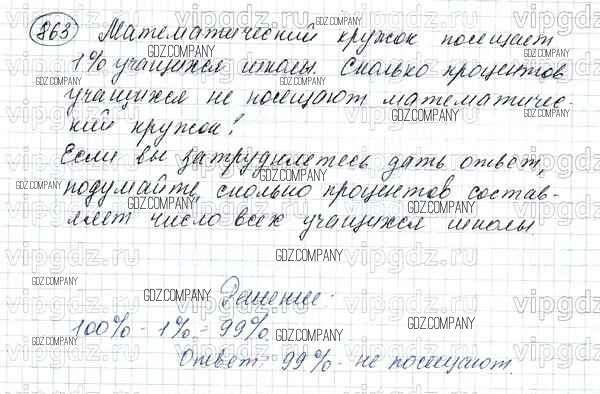 863 Математический кружок посещает
1% учащихся школы. Сколько процентов
учащихся не посещают математичес-
кий кружок?
Если вы затрудняетесь дать ответ,
подумайте, сколько процентов состав-
ляет число всех учащихся школы.
Решение.
100% - 1% = 99%
Ответ: 99% - не посещают.